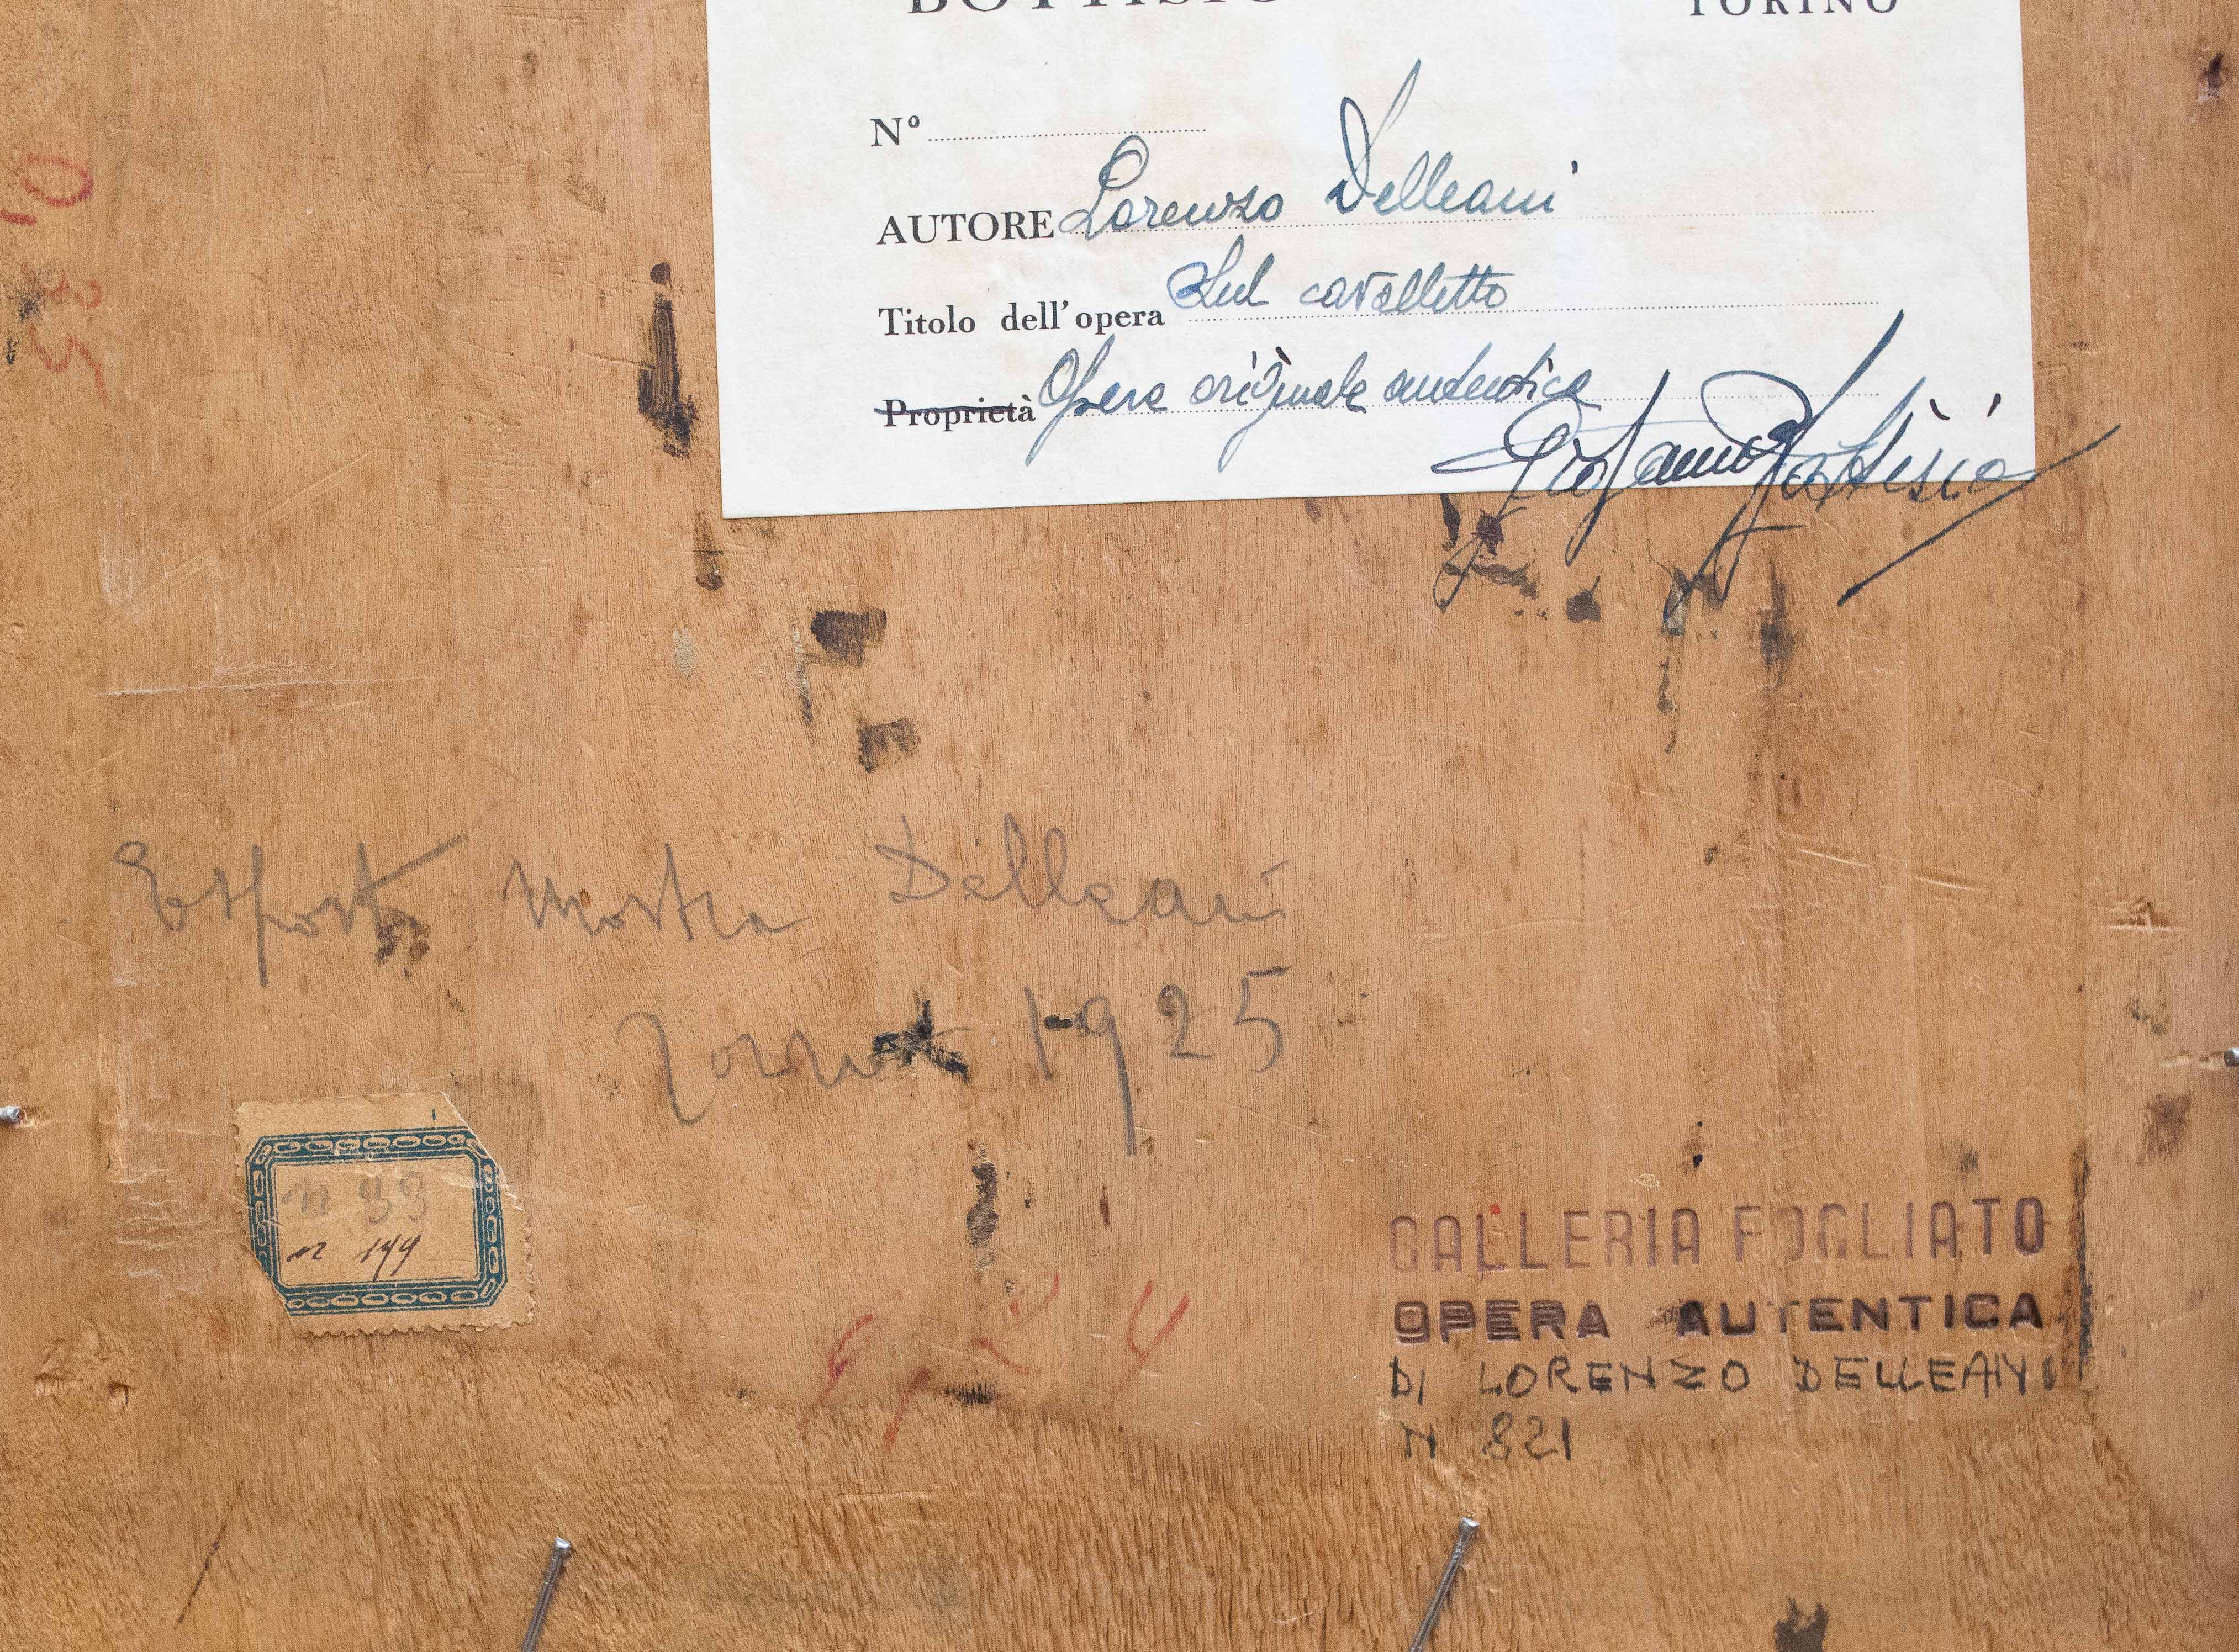 TORINO
N°
AUTORE Lorenzo Delleani
Titolo dell'opera Sul cavalletto
Proprietà Opera originale autentica
Esposto Mostra Delleani
Torino 1925
n 33
n 199
GALLERIA FOGLIATO
OPERA AUTENTICA
DI LORENZO DELLEANI
N 821